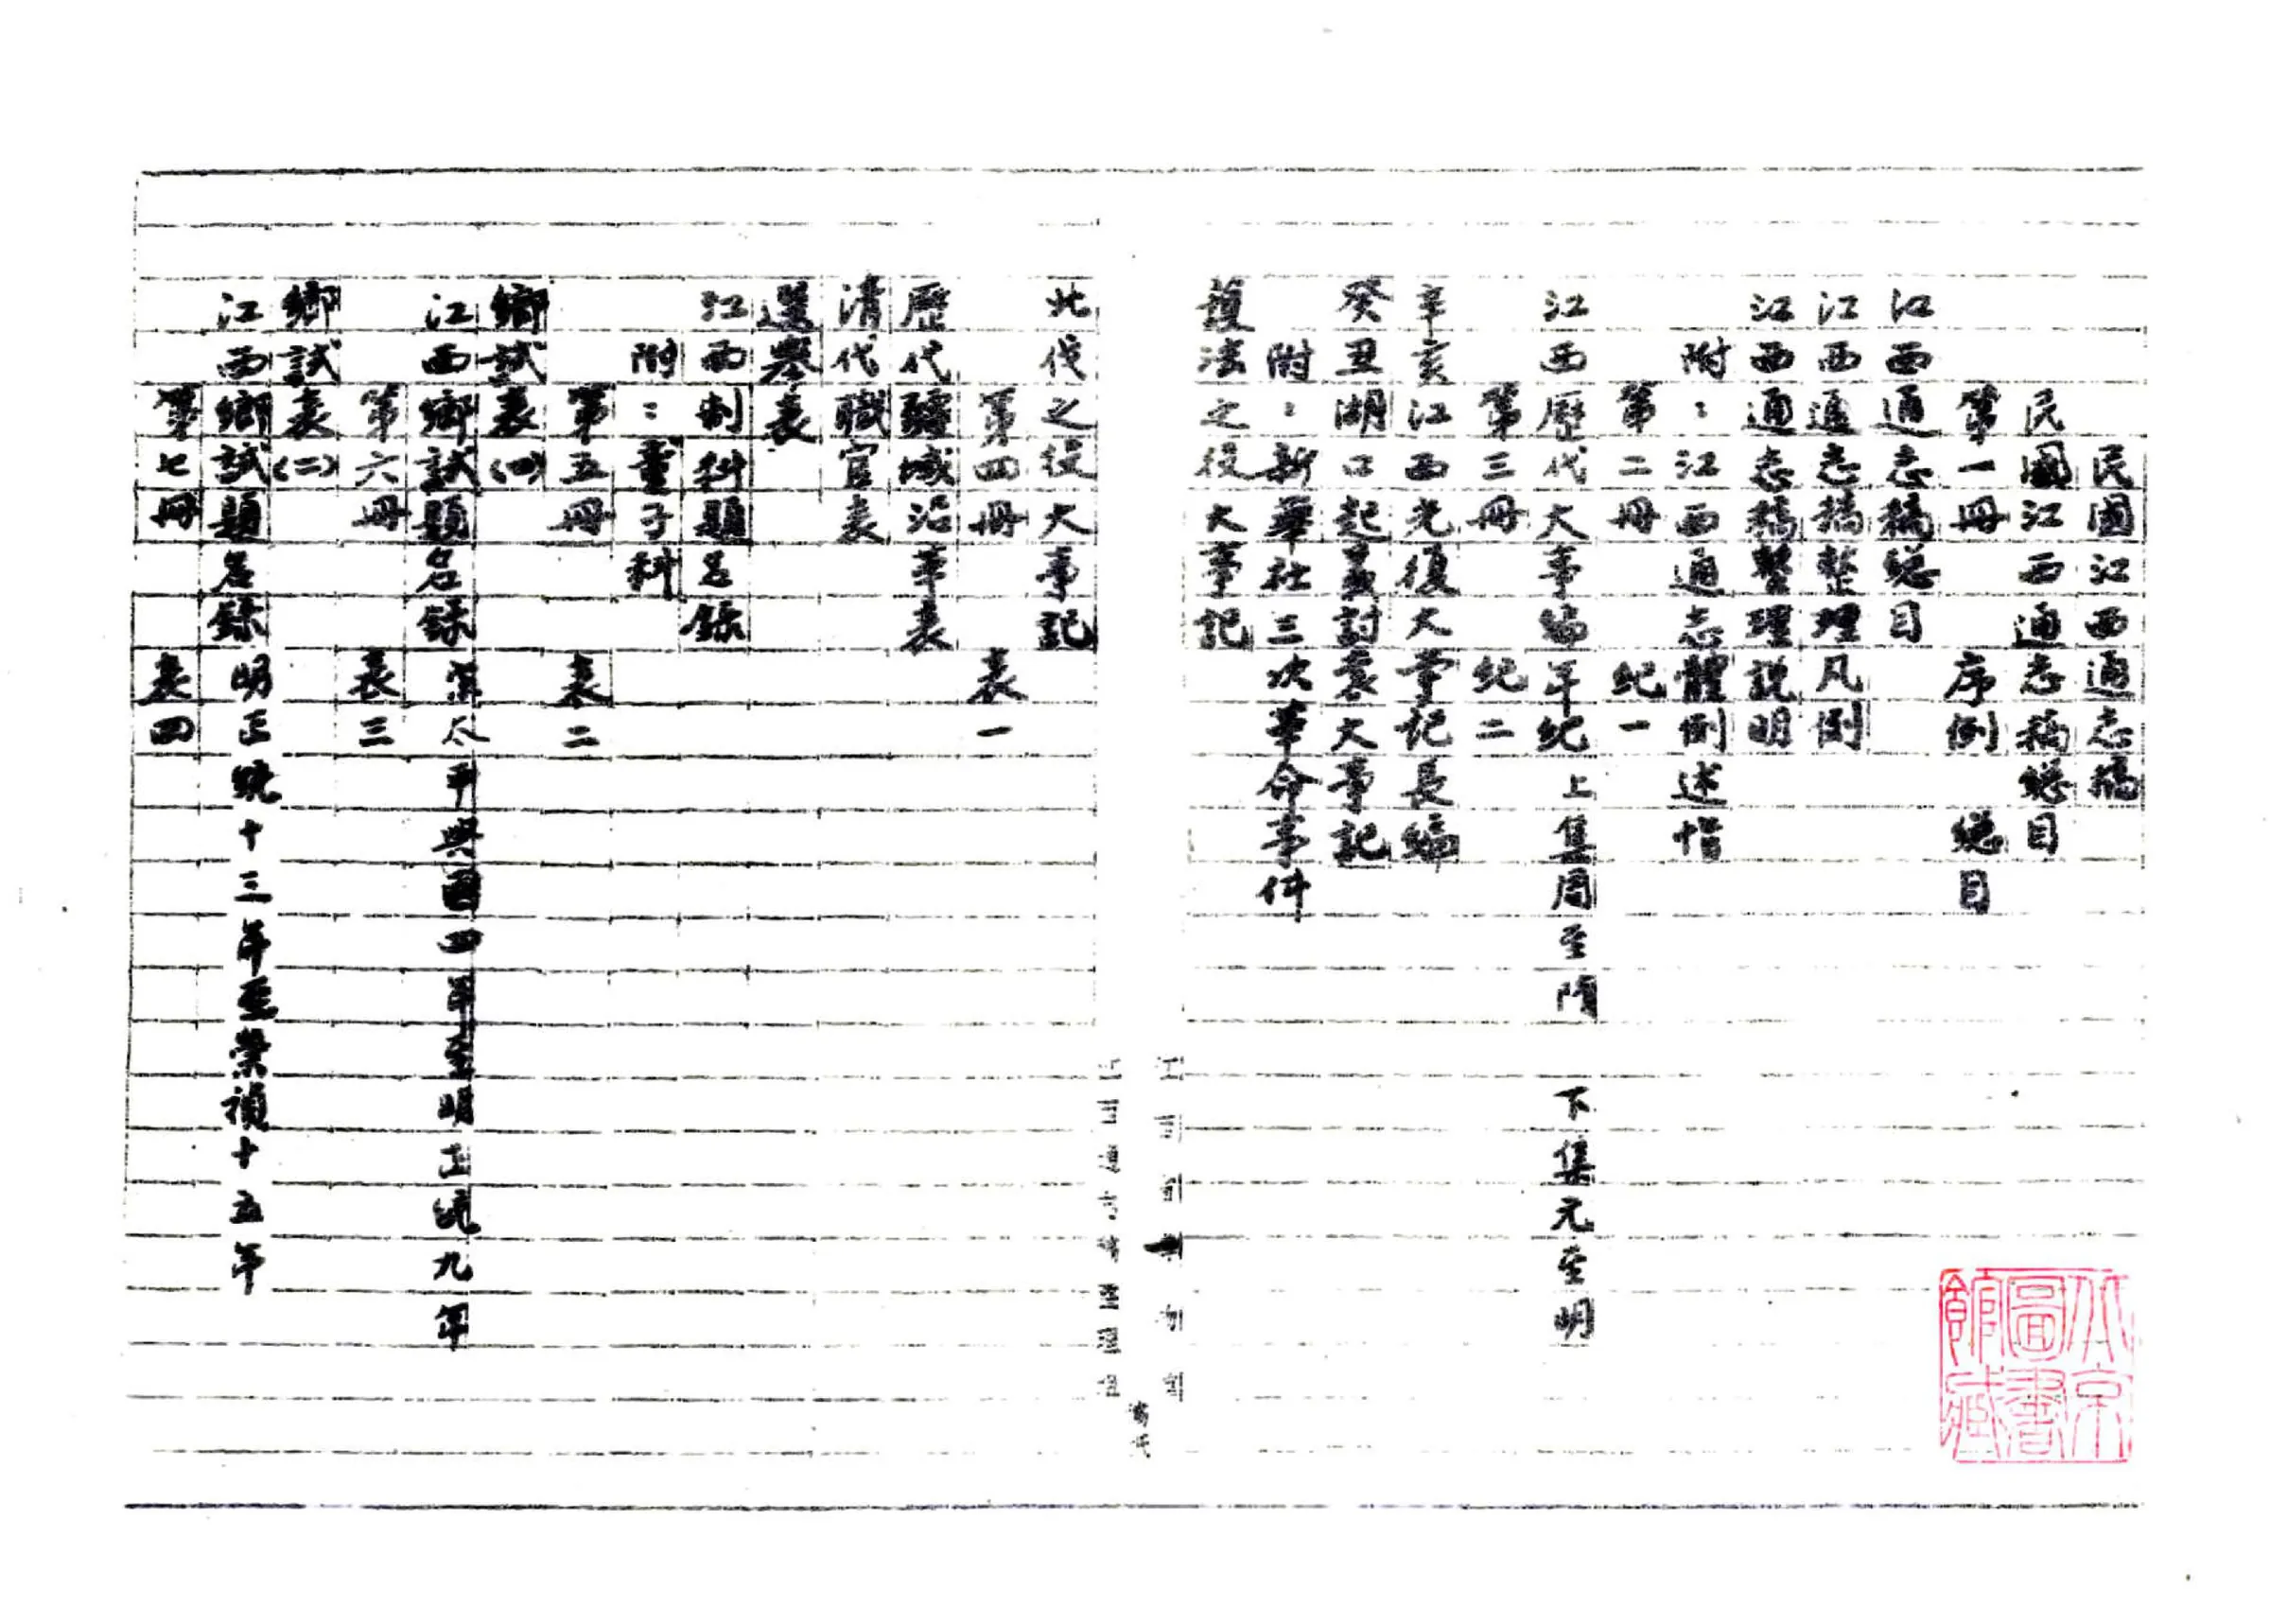 民國江西通志稿
民國江西通志稿總目
第一冊 序例 總目
江西通志稿總目
江西通志稿整理凡例
江西通志稿整理説明
附：江西通志體例述恉
第二冊 紀一
江西歷代大事編年紀 上集周至隋 下集元至明
第三冊 紀二
辛亥江西光復大事記長編
癸丑湖口起義討袁大事記
附：新華社三次革命事件
護法之役大事記
北伐之役大事記
第四冊 表一
歷代疆域沿革表
清代職官表
選舉表
江西制科題名錄
附：童子科
第五冊 表二
鄉試表(一)
江西鄉試題名錄 宋太平興國四年至明正統九年
第六冊 表三
鄉試表(二)
江西鄉試題名錄 明正統十三年至崇禎十五年
第七冊 表四
北京圖書館藏